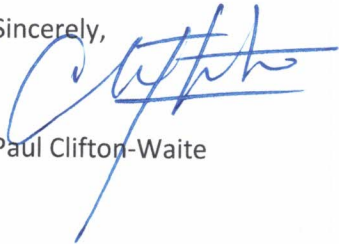 Sincerely,
Paul Clifton-Waite